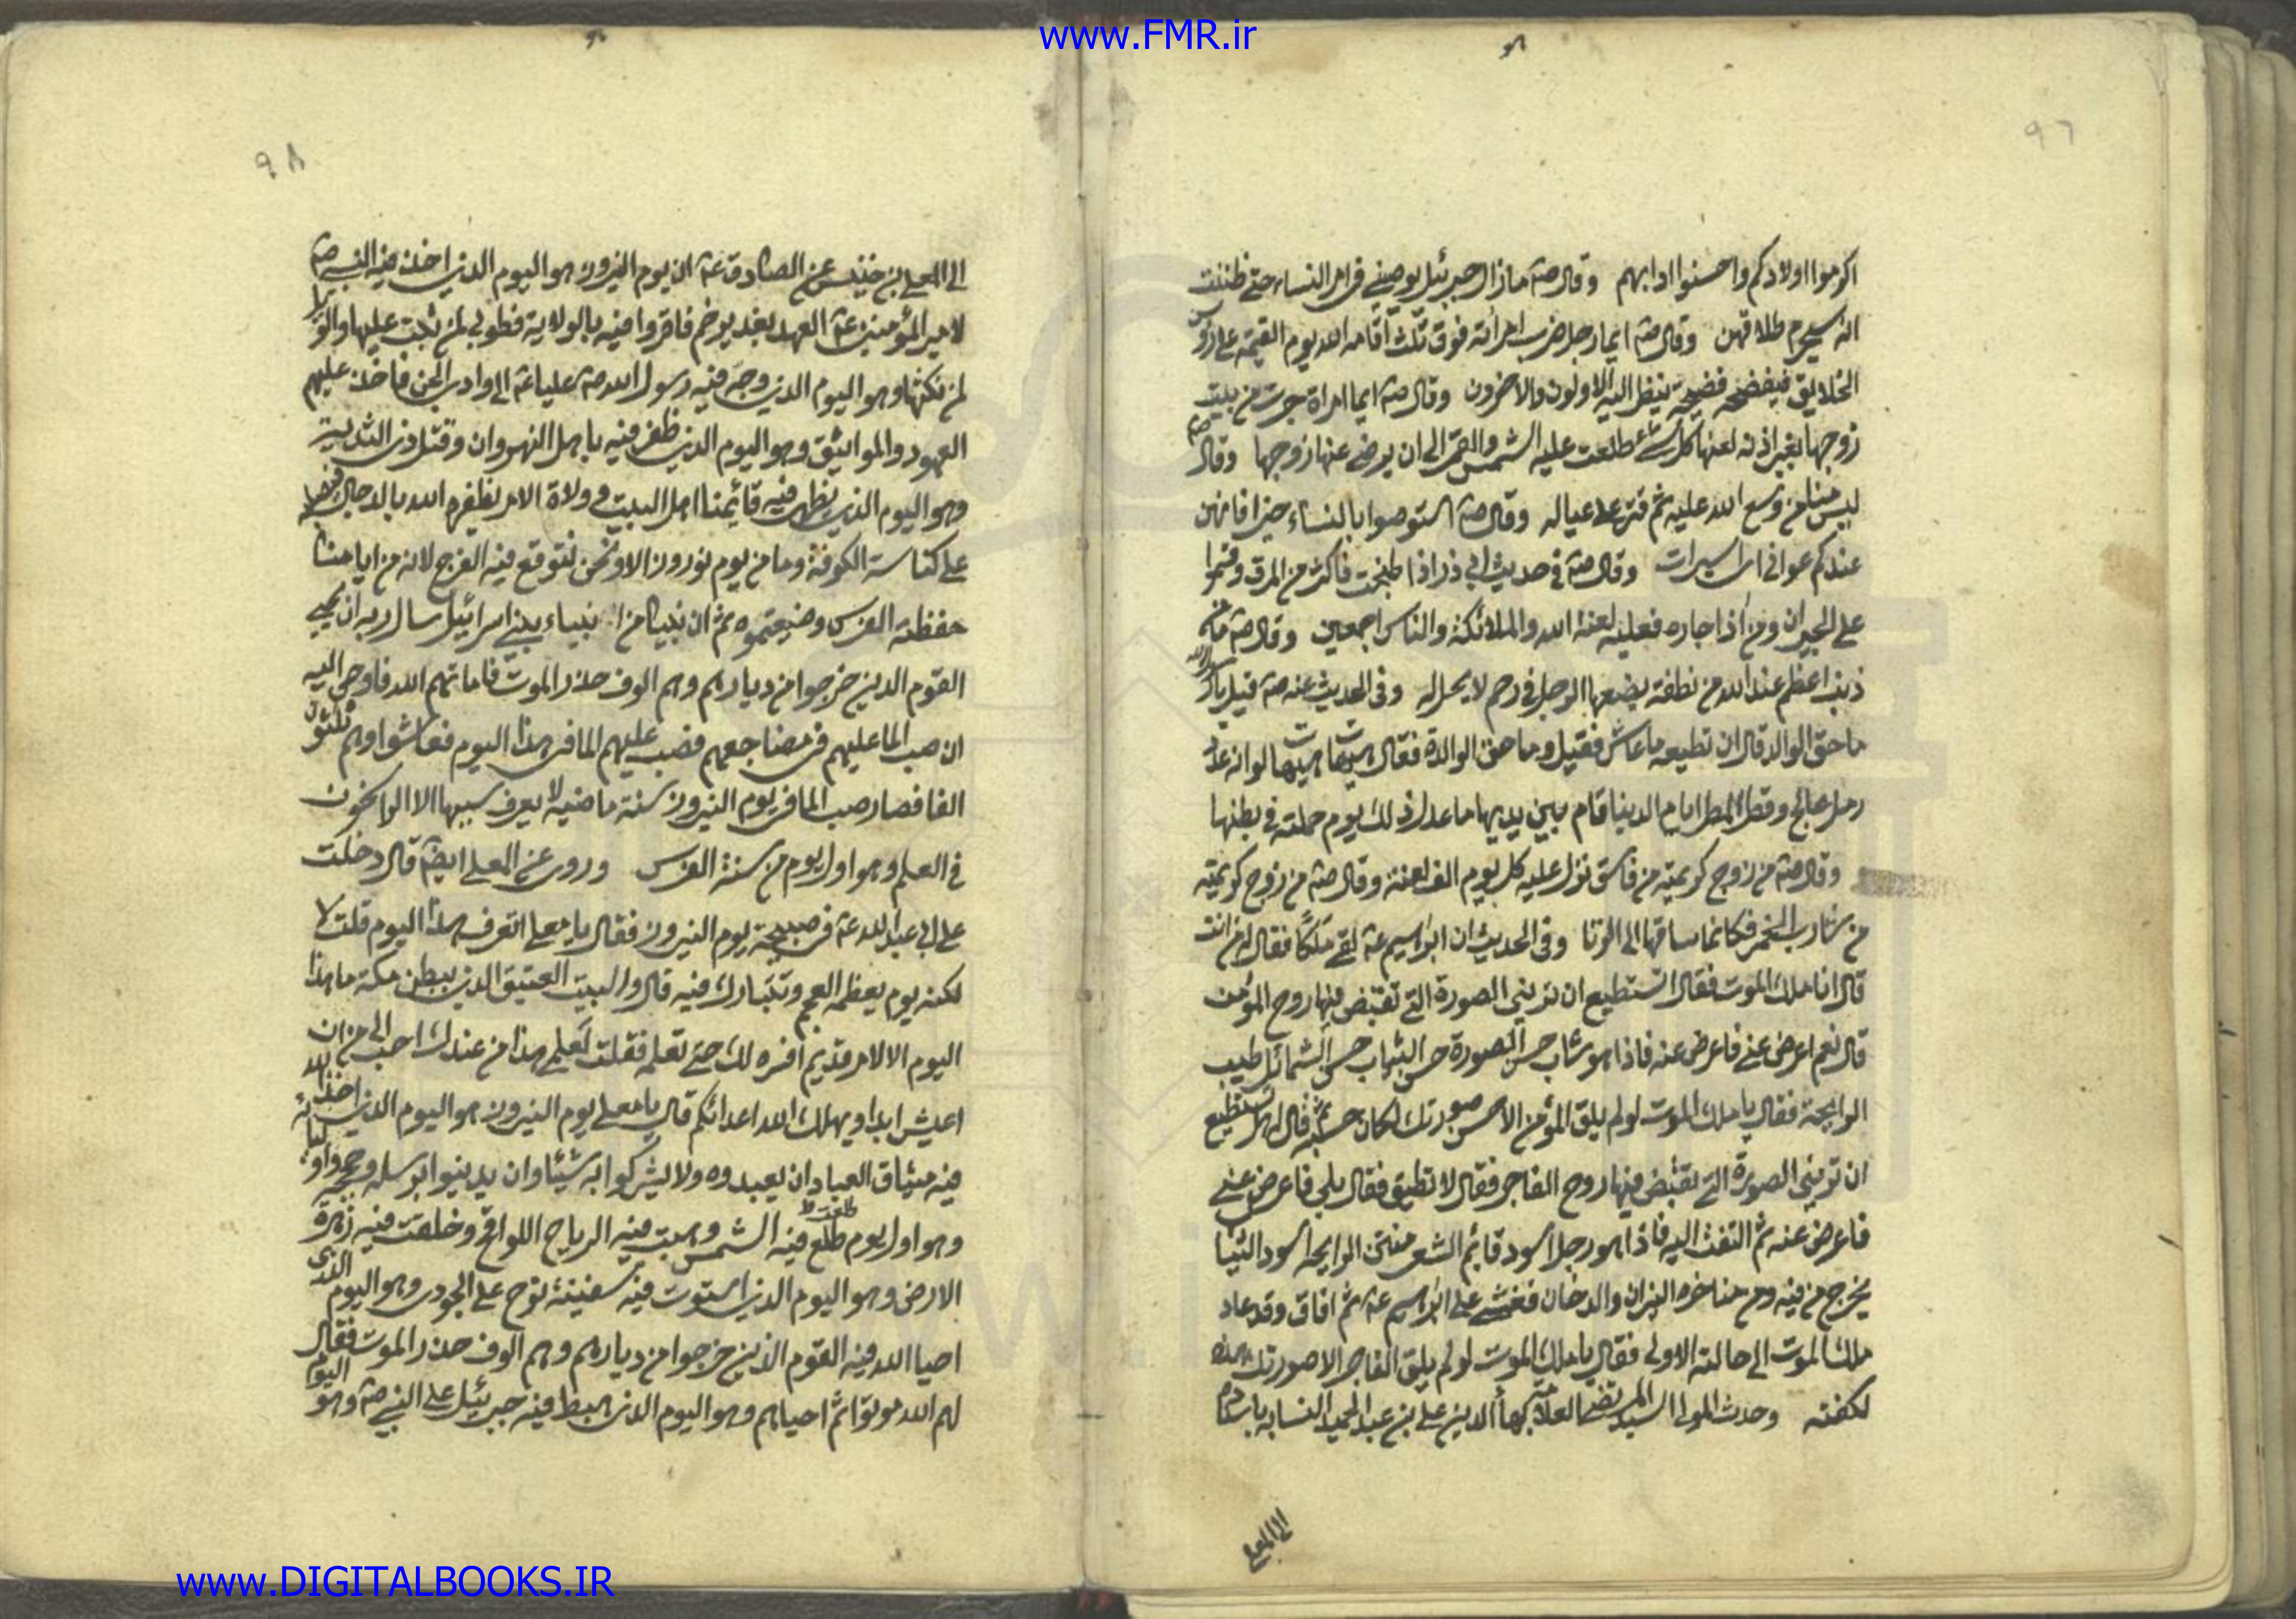 www.FMR.ir
٩٦
اكرموا اولادكم واحسنوا ادابهم وقال صه مازال جبرئيل يوصيني في امر النساء حتى ظننت
انه سيحرم طلاقهن وقال صه ايما رجل ضرب امرأته فوق ثلث اقامه الله يوم القيمة على رؤس
الخلايق فيفضحه فضيحة ينظر اليه الاولون والاخرون وقال صه ايما امراة خرجت من بيت
زوجها بغير اذنه لعنها كل شئ طلعت عليه الشمس والقمر الى ان يرضى عنها زوجها وقال صه
ليس منا من وسع الله عليه ثم قتر على عياله وقال صه استوصوا بالنساء خيرا فانهن
عندكم عوانى اى اسيرات وقال صه في حديث ابي ذر اذا طبخت فاكثر من المرق وقسموا
على الجيران ومن اذا جاره فعليه لعنة الله والملائكة والناس اجمعين وقال صه ما من
ذنب اعظم عند الله من نطفة يضعها الرجل في رحم لا يحل له وفى الحديث عنه صه قيل يا رسول الله
ما حق الوالد قال ان تطيعه ما عاش فقيل وما حق الوالدة فقال هيهات هيهات لو انه عدد
رمل عالج وقطر المطر ايام الدنيا قام بين يديها ما عدل ذلك يوم حملته في بطنها
وقال صه من زوج كريمته من فاسق نزل عليه كل يوم الف لعنة وقال صه من زوج كريمته
من شارب الخمر فكانما ساقها الى الزنا وفى الحديث ان ابراهيم عه لقى ملكا فقال له من انت
قال انا ملك الموت فقال اتستطيع ان تريني الصورة التى تقبض فيها روح المؤمن
قال نعم اعرض عنى فاعرض عنه فاذا هو شاب حسن الصورة حسن الثياب حسن الشمائل طيب
الرايحة فقال يا ملك الموت لو لم يلق المؤمن الا حسن صورتك لكان حسبه ثم قال له هل تستطيع
ان تريني الصورة التى تقبض فيها روح الفاجر فقال لا تطيق فقال بلى فاعرض عنى
فاعرض عنه ثم التفت اليه فاذا هو رجل اسود قايم الشعر منتن الرايحه اسود الثياب
يخرج من فيه ومن مناخره النيران والدخان فغشى على ابراهيم عه ثم افاق وقد عاد
ملك الموت الى حالته الاولى فقال يا ملك الموت لو لم يلق الفاجر الا صورتك هذه
لكفته وحدث المولى السيد المرتضى العلامة بهاء الدين على بن عبد الحميد النسابه باسناده
الى المعلى
٩٨
الى المعلى بن خنيس عن الصادق عه ان يوم النيروز هو اليوم الذى اخذ فيه النبى صه
لامير المؤمنين عه العهد بغدير خم فاقروا فيه بالولاية فطوبى لمن ثبت عليها والويل
لمن نكثها وهو اليوم الذى وجه فيه رسول الله صه عليا عه الى وادى الجن فاخذ عليهم
العهود والمواثيق وهو اليوم الذى ظفر فيه باهل النهروان وقتل ذى الثدية
وهو اليوم الذى يظهر فيه قائمنا اهل البيت وولاة الامر يظفره الله بالدجال فيصلبه
على كناسة الكوفة وما من يوم نوروز الا ونحن نتوقع فيه الفرج لانه من ايامنا
حفظته الفرس وضيعتموه ثم ان نبيا من انبياء بنى اسرائيل سال ربه ان يحيى
القوم الذين خرجوا من ديارهم وهم الوف حذر الموت فاماتهم الله فاوحى اليه
ان صب الما عليهم فى مضاجعهم فصب عليهم الما فى هذا اليوم فعاشوا وهم ثلثون
الفا فصار صب الما فى يوم النيروز سنة ماضية لا يعرف سببها الا الراسخون
في العلم وهو اول يوم من سنة الفرس وروى عن المعلى ايضا قال دخلت
على ابي عبد الله عه فى صبيحة يوم النيروز فقال يا معلى اتعرف هذا اليوم قلت لا
لكنه يوم يعظمه العجم وتتبارك فيه قال والبيت العتيق الذى ببطن مكة ما هذا
اليوم الا لامر قديم افسره لك حتى تعلمه فقلت لعلمى هذا من عندك احب الى من ان
اعيش ابدا ويهلك الله اعدائكم قال يا معلى يوم النيروز هو اليوم الذى اخذ الله
فيه ميثاق العباد ان يعبدوه ولا يشركوا به شيئا وان يدينوا برسله وحججه واوليائه
وهو اول يوم طلعت فيه الشمس وهبت فيه الرياح اللواقح وخلقت فيه زهرة
الارض وهو اليوم الذى استوت فيه سفينة نوح على الجودى وهو اليوم الذى
احيا الله فيه القوم الذين خرجوا من ديارهم وهم الوف حذر الموت فقال
لهم الله موتوا ثم احياهم وهو اليوم الذى هبط فيه جبرئيل على النبى صه وهو اليوم
www.DIGITALBOOKS.IR